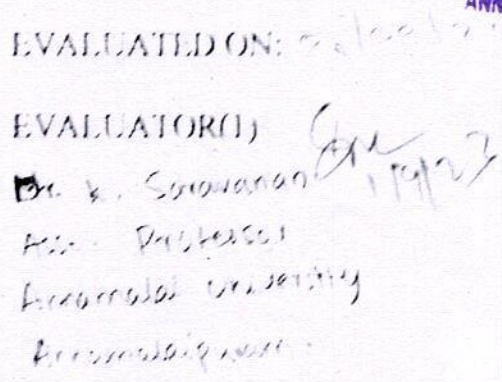 ANN
EVALUATED ON:
EVALUATOR(1)
1/9/23
Dr. K. Saravanan
Asso. Professor
Annamalai University
Annamalainagar.